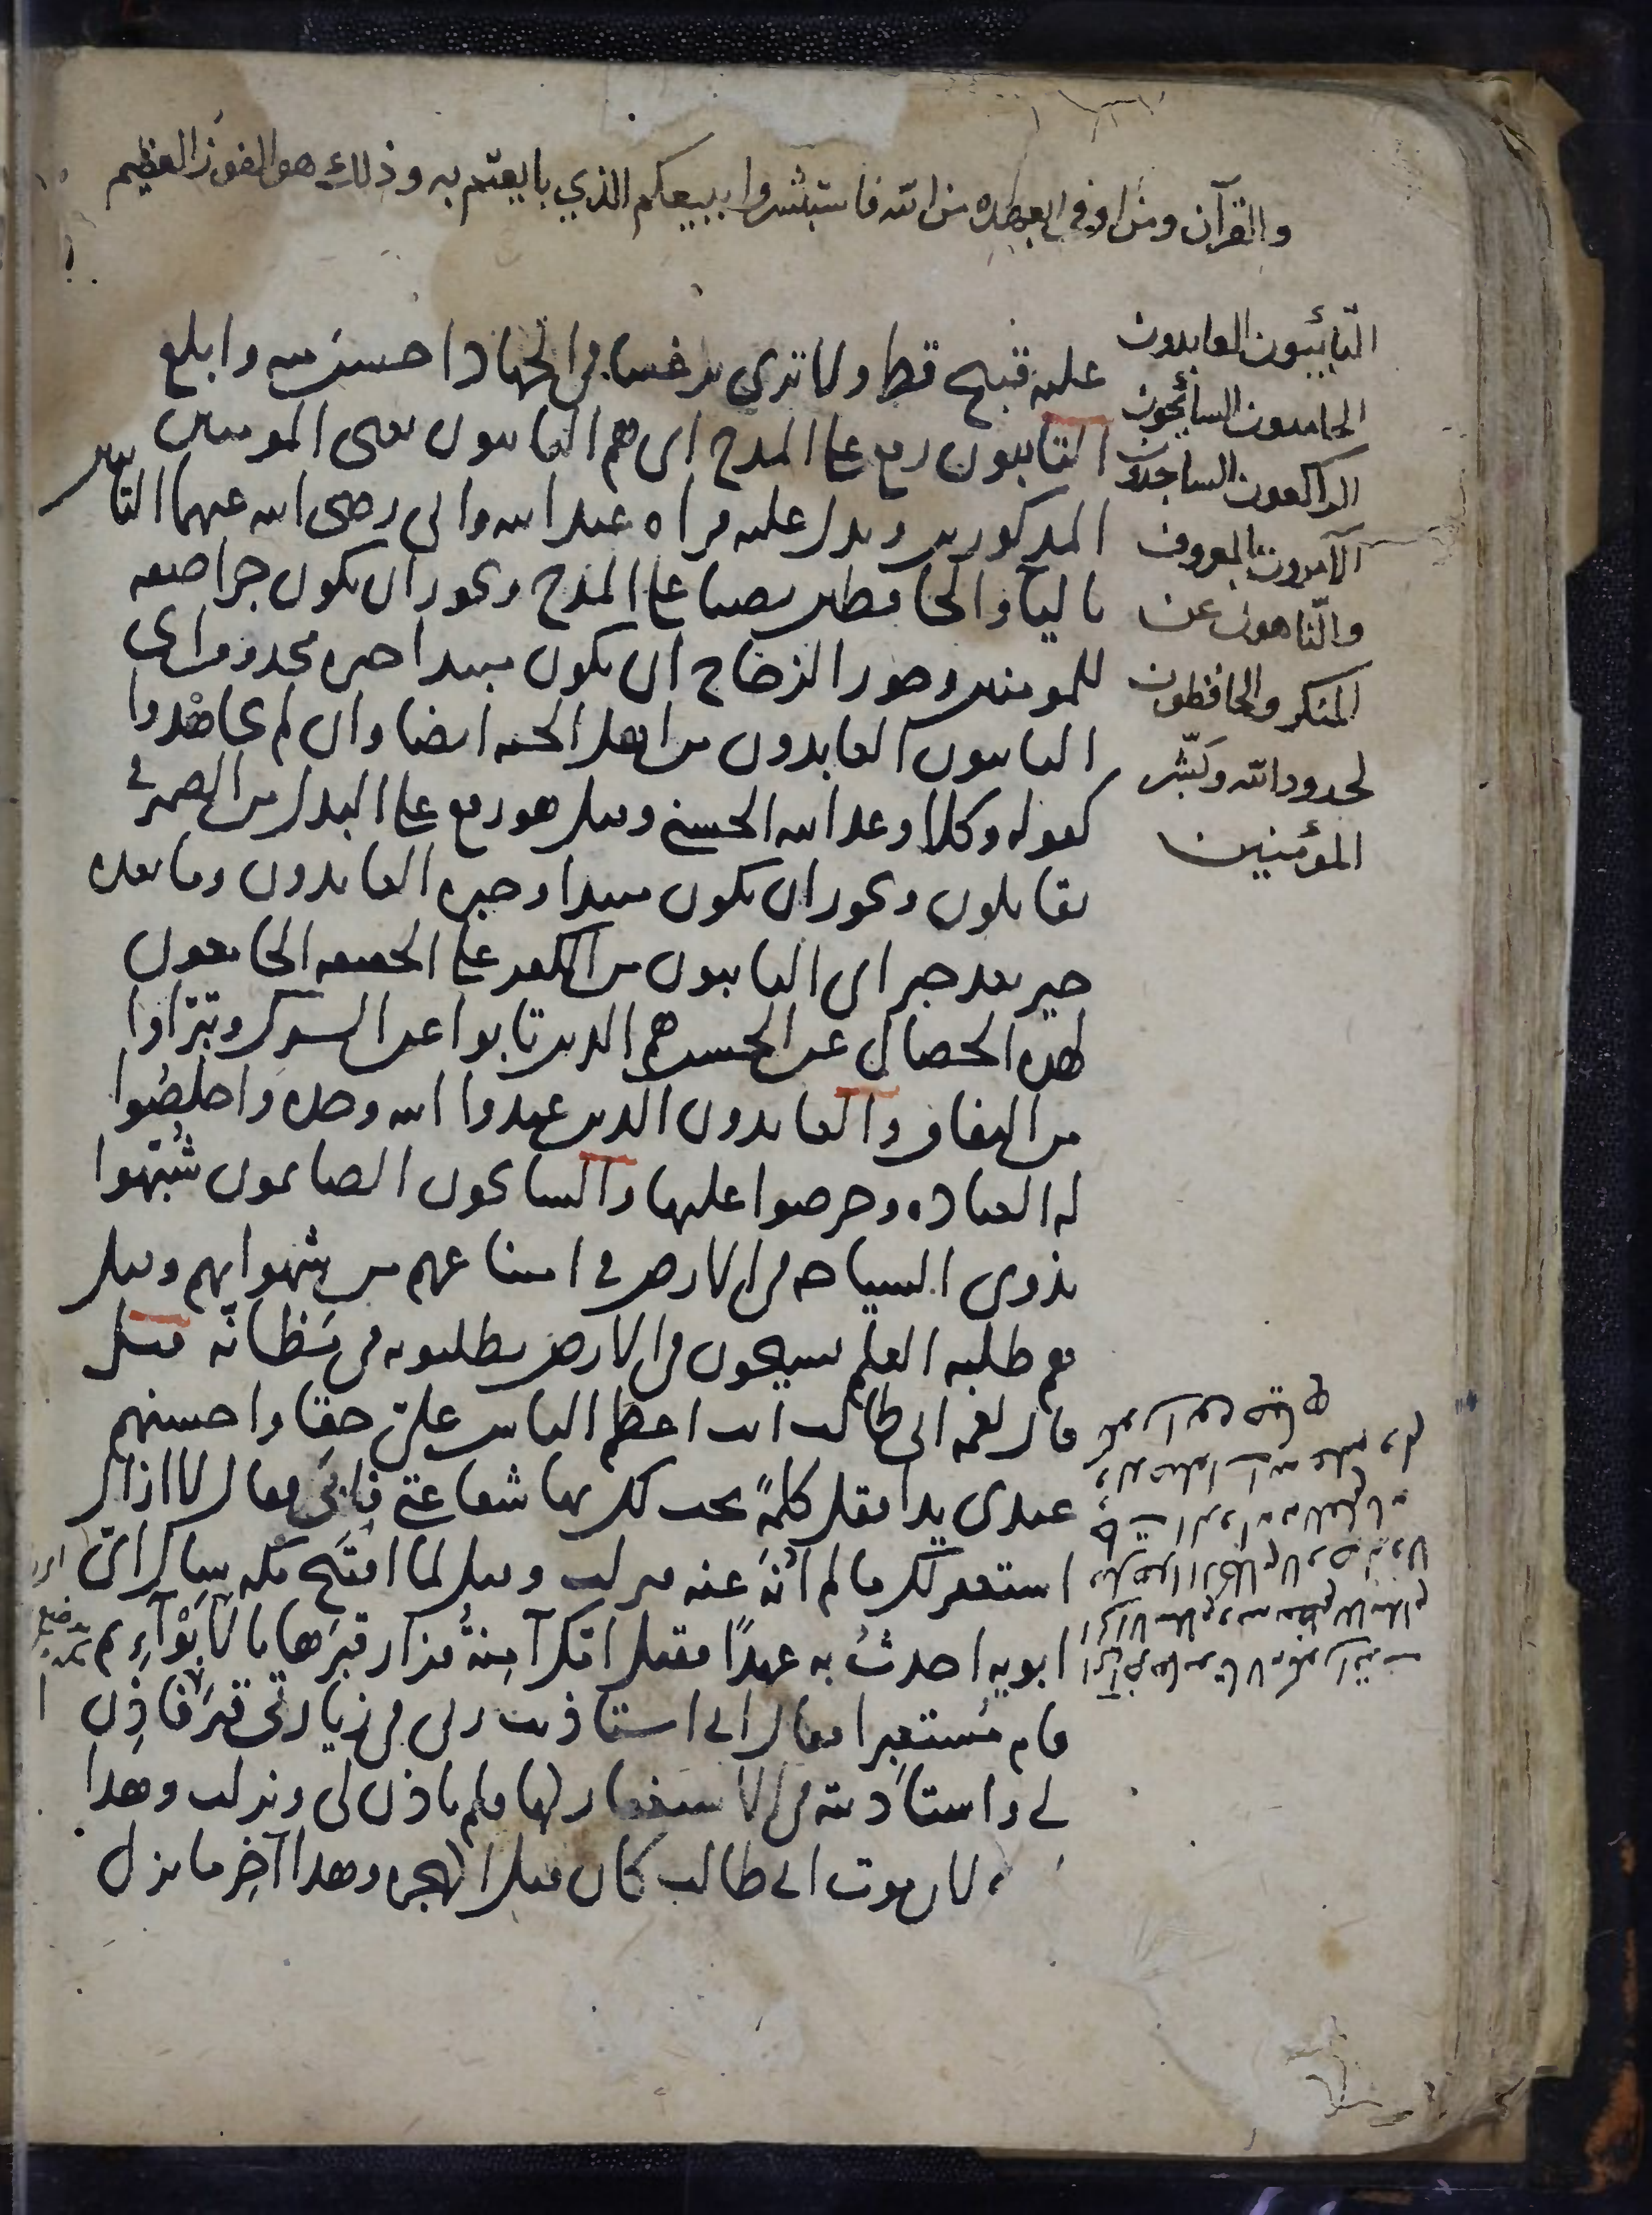 والقرآن ومن اوفى بعهده من الله فاستبشروا ببيعكم الذي بايعتم به وذلك هو الفوز العظيم
التائبون العابدون
الحامدون السائحون
الراكعون الساجدون
الآمرون بالمعروف
والناهون عن
المنكر والحافظون
لحدود الله وبشر
المؤمنين
عليه قبيح قط ولا ترى ترغيبا في الجهاد احسن منه وابلغ
التايبون رفع على المدح اى هم التايبون يعنى المومنين
المذكورين ويدل عليه قراه عبد الله وابى رضى الله عنهما التايبين
بالياء والحافظين نصبا على المدح ويجوز ان يكون جرا صفه
للمومنين وجوز الزجاج ان يكون مبتدا خبره محذوف اى
التايبون العابدون من اهل الجنه ايضا وان لم يجاهدوا
كقوله وكلا وعد الله الحسنى وقيل هو رفع على البدل من الضمير فى
يقاتلون ويجوز ان يكون مبتدا وخبره العابدون وما بعده
خبر بعد خبر اى التايبون من الكفر على الحقيقه الجامعون
لهذه الخصال عن الحسن هم الذين تابوا عن الشرك وتبراوا
من النفاق والعابدون الذين عبدوا الله وحده واخلصوا
له العباده وحرصوا عليها والسايحون الصايمون شبهوا
بذوى السياحه فى الارض فى امتناعهم من شهواتهم وقيل
هم طلبه العلم يسيحون فى الارض يطلبونه فى مظانه قيل
قال لعمه ابى طالب انت اعظم الناس على حقا واحسنهم
عندى يدا فقل كلمة تجب لك بها شفاعتى فابى فقال لا ازال
استغفر لك ما لم انه عنه فنزلت وقيل لما افتتح مكه سال اى
ابويه احدث به عهدا فقيل امك آمنة فزار قبرها بالابوآء ثم
قام مستعبرا فقال انى استاذنت ربى فى زيارة قبر امى فاذن
لى واستاذنته فى الاستغفار لها فلم ياذن لى ونزلت وهذا
لان موت ابى طالب كان قبل الهجره وهذا آخر ما نزل